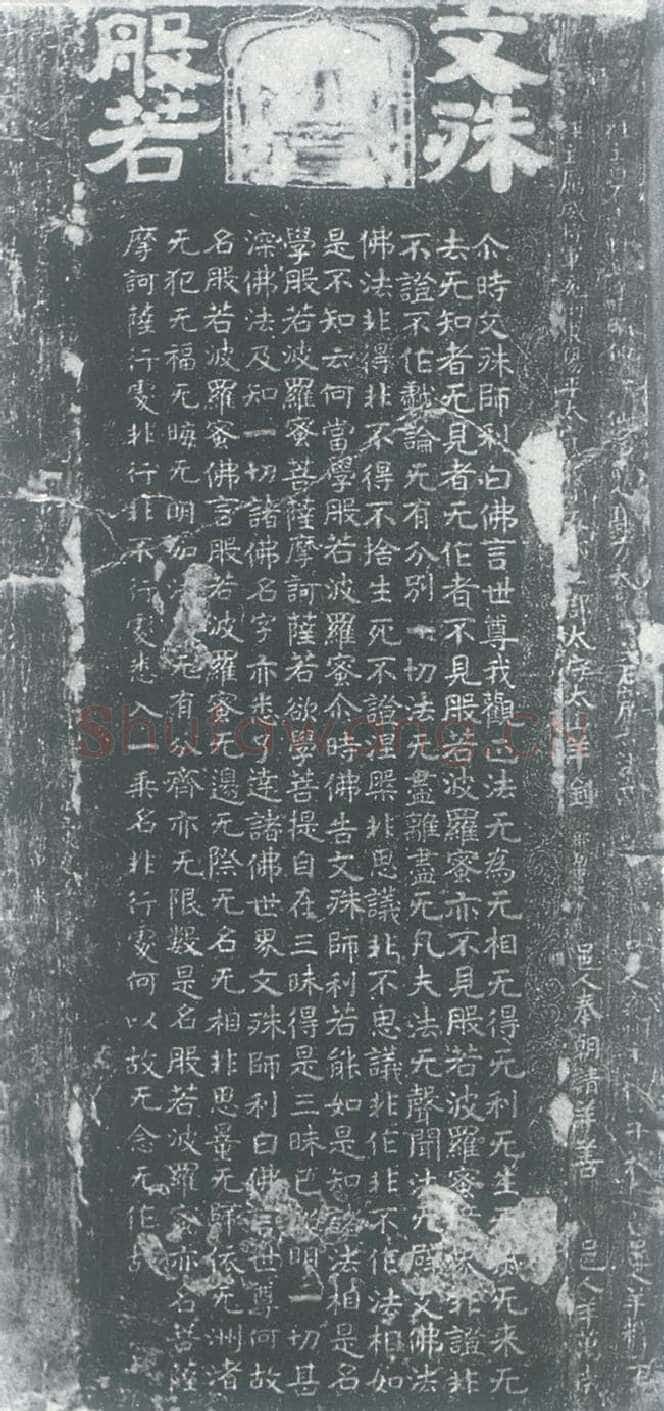 文殊
般若
尒時文殊師利白佛言世尊我觀正法无為无相无得无利无生无滅无来无
去无知者无見者无作者不見般若波羅蜜亦不見般若波羅蜜境界非證非
不證不作戲論无有分別一切法无盡離盡无凡夫法无聲聞法无辟支佛法
佛法非得非不得不捨生死不證涅槃非思議非不思議非作非不作法相如
是不知云何當學般若波羅蜜尒時佛告文殊師利若能如是知諸法相是名
學般若波羅蜜菩薩摩訶薩若欲學菩提自在三昧得是三昧已照明一切甚
深佛法及知一切諸佛名字亦悉了達諸佛世界文殊師利白佛言世尊何故
名般若波羅蜜佛言般若波羅蜜无邊无際无名无相非思量无歸依无洲渚
无犯无福无晦无明如法无有分齊亦无限數是名般若波羅蜜亦名菩薩
摩訶薩行處非行非不行處悉入一乘名非行處何以故无念无作故
郡太守太山羊釗 邑人奉朝請羊善 邑人羊
Shufawang.cn